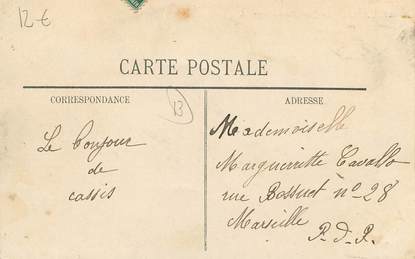 12 €
CARTE POSTALE
CORRESPONDANCE
ADRESSE
13
Le bonjour
de
cassis
Mademoiselle
Marguerritte Cavallo
rue Bossuet nº 28
Marseille
P.d.R.